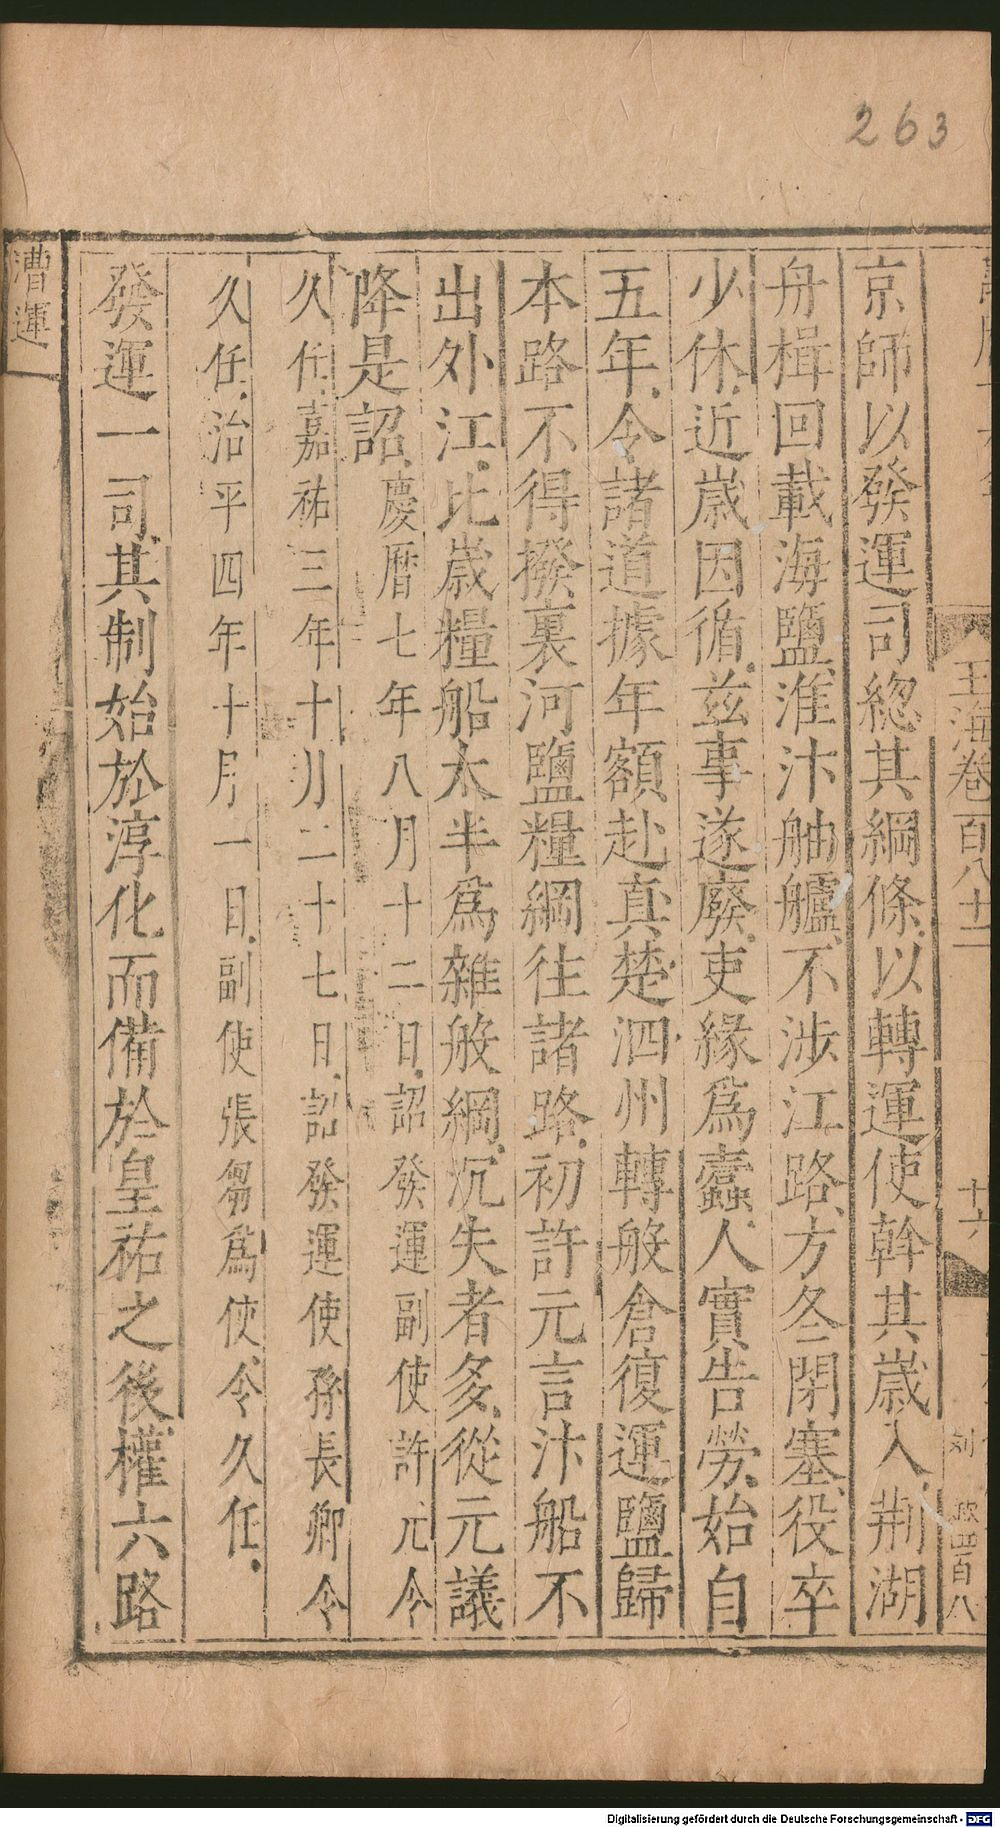 263
玉海卷百八十二
十六
京師以發運司總其綱條以轉運使斡其歲入荆湖
舟楫回載海鹽淮汴舳艫不涉江路方冬閉塞役卒
少休近歲因循兹事遂廢吏緣爲蠹人實告勞始自
五年令諸道據年額赴真楚泗州轉般倉復運鹽歸
本路不得撥裏河鹽糧綱往諸路初許元言汴船不
出外江比歲糧船太半爲雜般綱沉失者多從元議
降是詔慶曆七年八月十二日詔發運副使許元令
久任嘉祐三年十月二十七日詔發運使孫長卿令
久任治平四年十月一日副使張芻爲使令久任
發運一司其制始於淳化而備於皇祐之後權六路
漕運
Digitalisierung gefördert durch die Deutsche Forschungsgemeinschaft - DFG